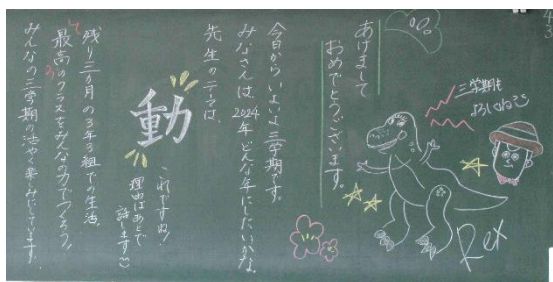 あけまして
おめでとうございます。
今日からいよいよ三学期です。
みなさんは、2024年どんな年にしたいかな。
先生のテーマは、
動
これですね!
理由はあとで
話します
残り三ヶ月の3年3組での生活。
最高のクラスをみんなの力でつくろう。
みんなの三学期の活やく楽しみにしています。
三学期も
よろしくね
Rex